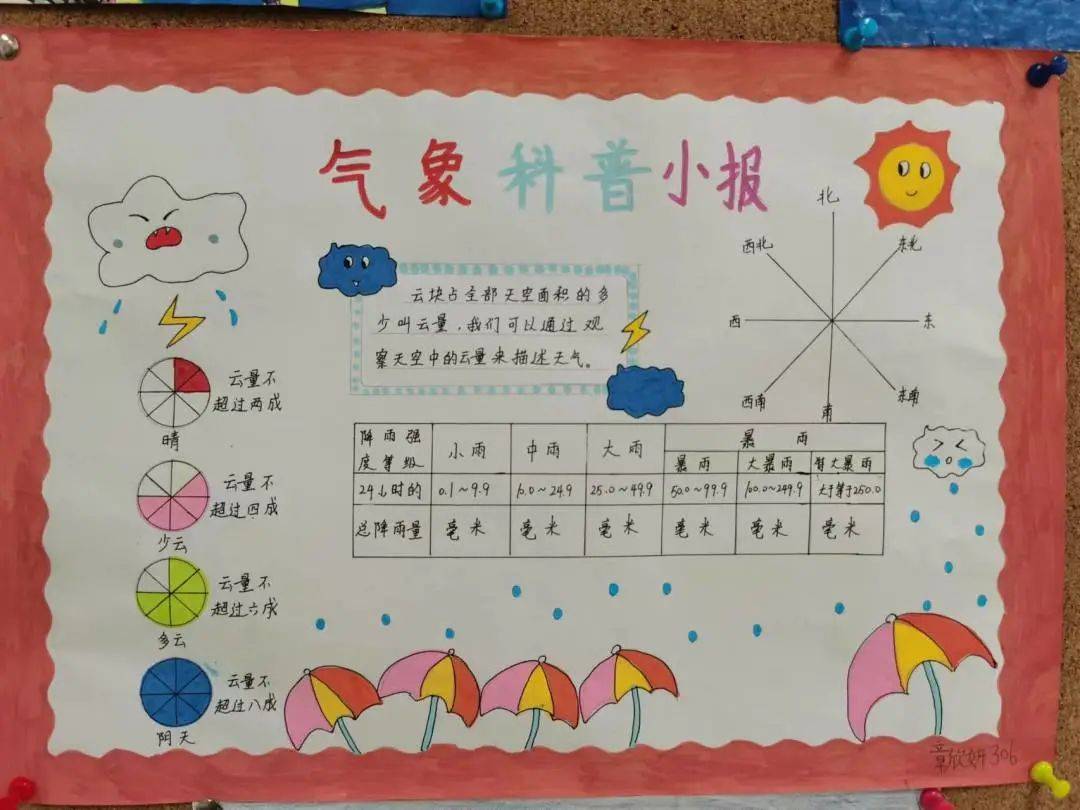 气象科普小报
北
西北
东北
西
东
西南
南
东南
云块占全部天空面积的多
少叫云量,我们可以通过观
察天空中的云量来描述天气。
云量不
超过两成
晴
云量不
超过四成
少云
云量不
超过六成
多云
云量不
超过八成
阴天
降雨强
度等级
小雨
中雨
大雨
暴雨
暴雨
大暴雨
特大暴雨
24小时的
总降雨量
0.1~9.9
毫米
10.0~24.9
毫米
25.0~49.9
毫米
50.0~99.9
毫米
100.0~249.9
毫米
大于等于250.0
毫米
306